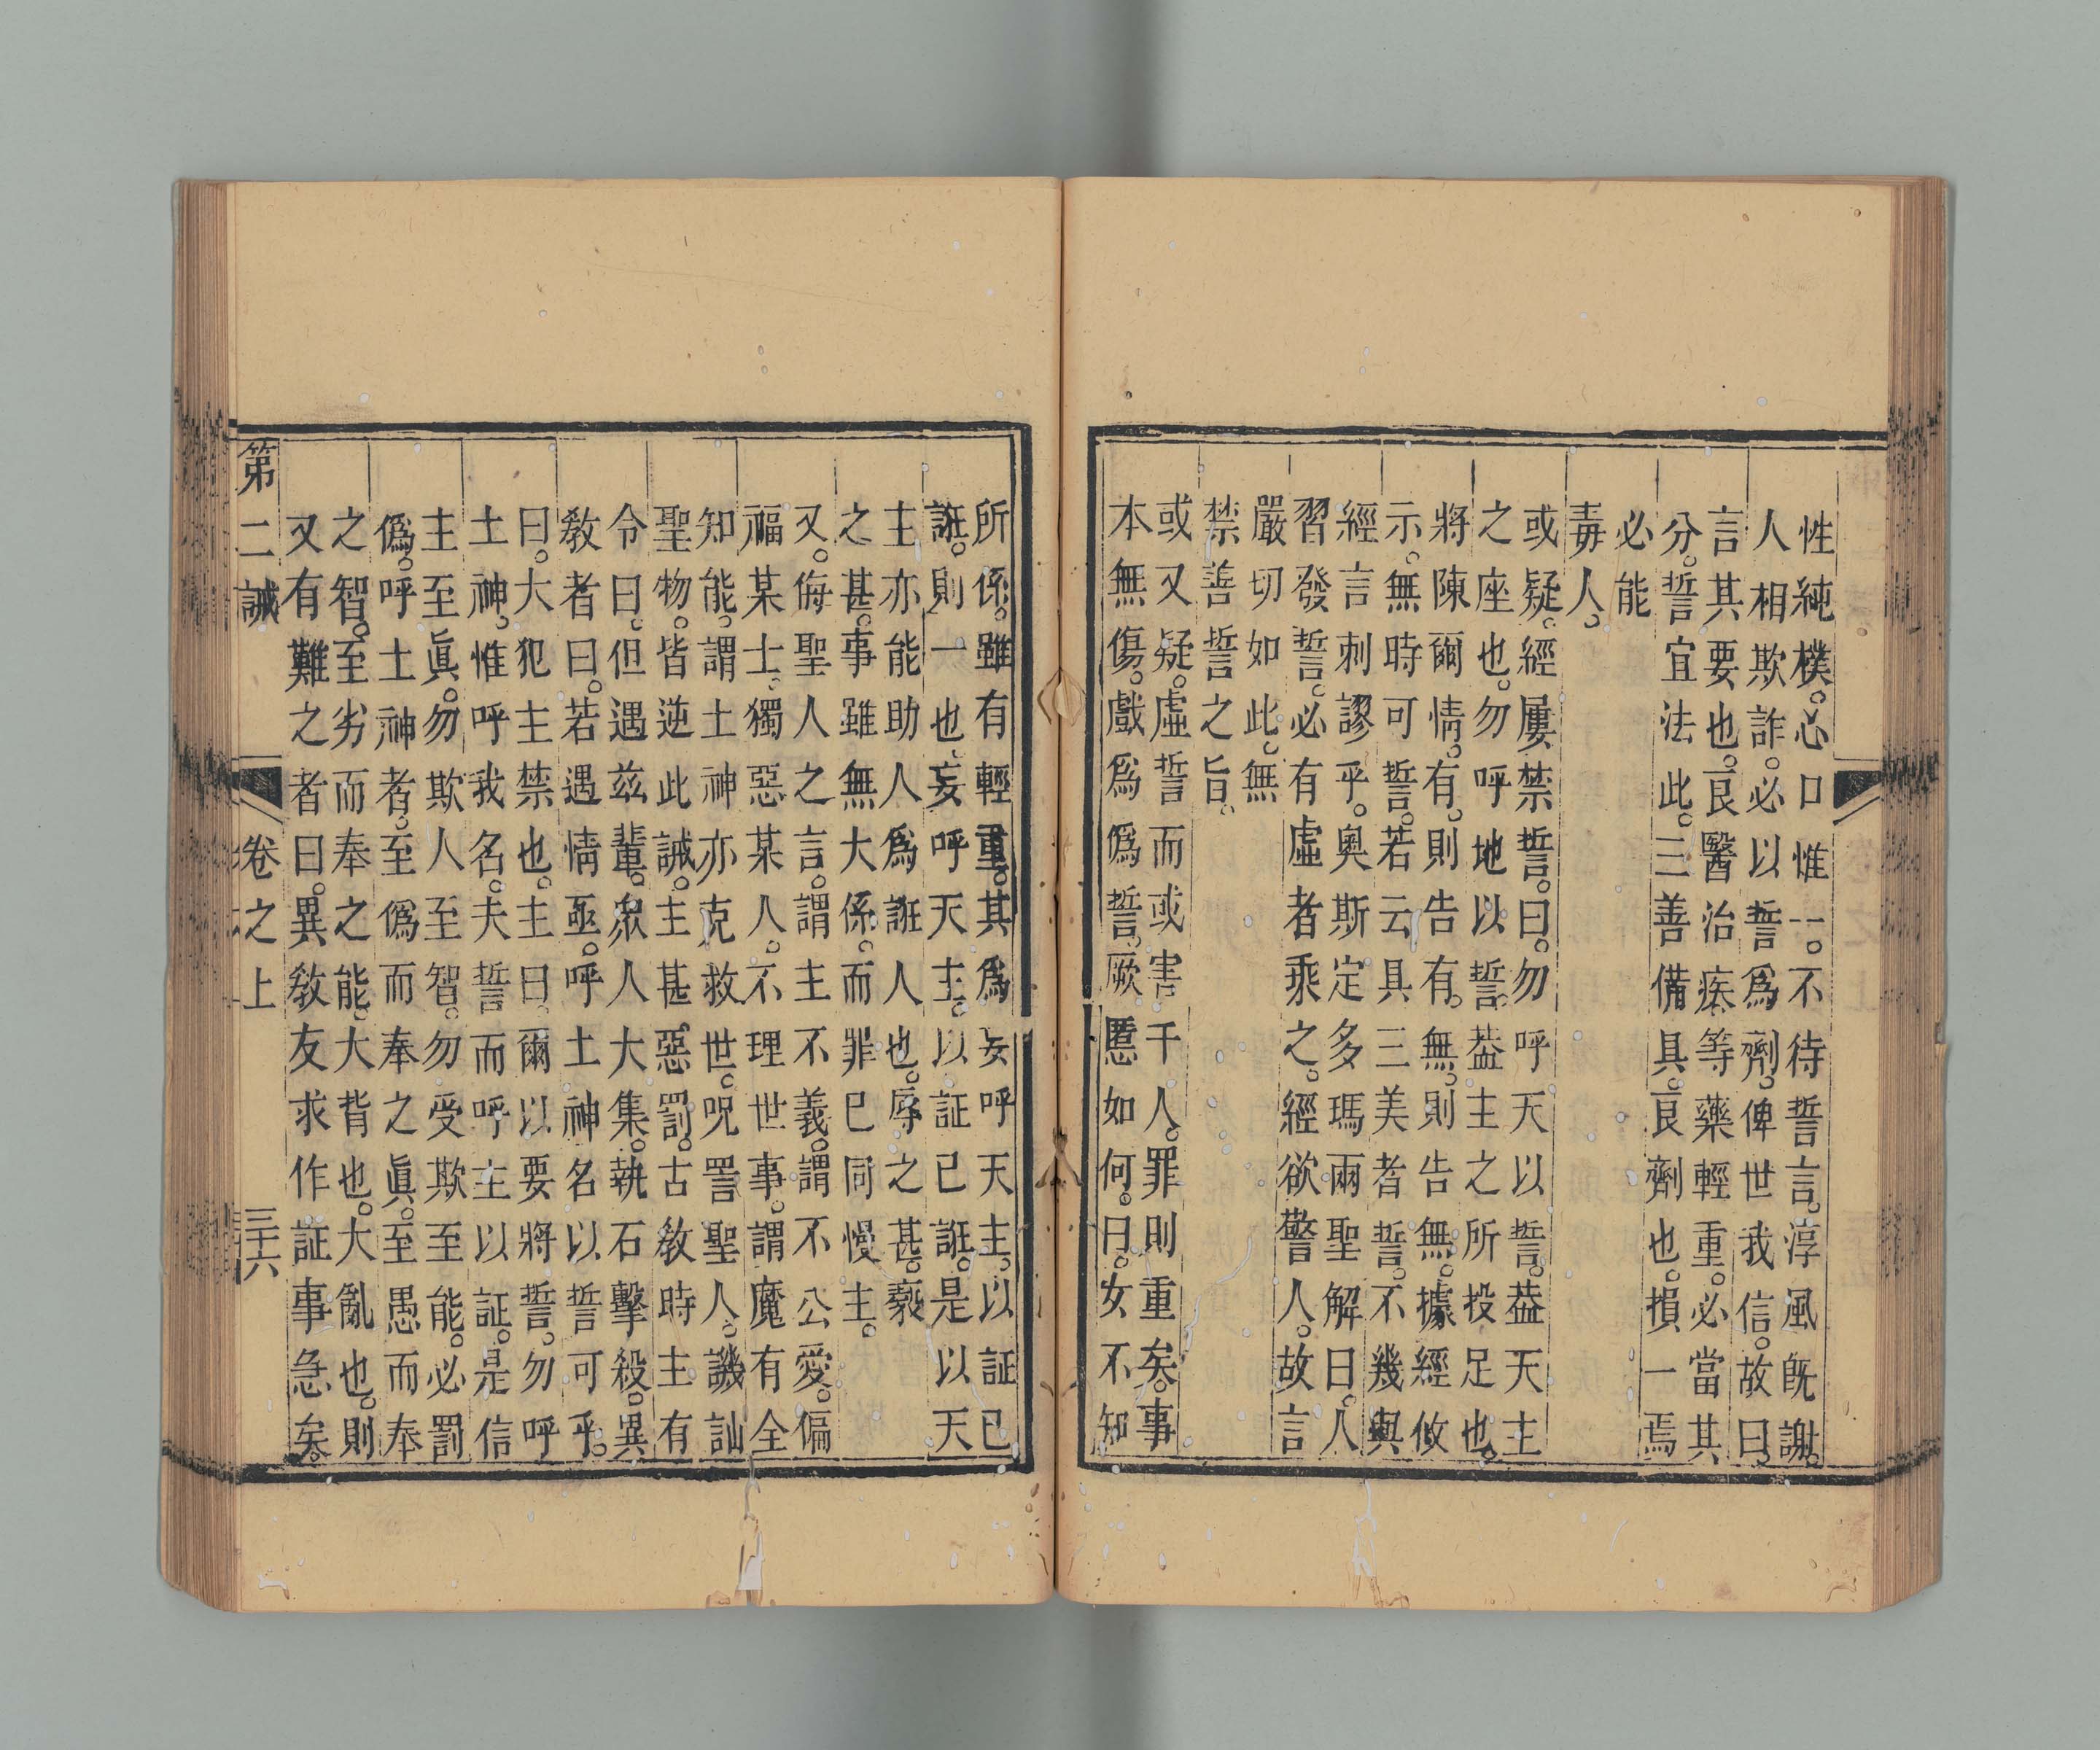 性純樸。心口惟一。不待誓言。淳風既謝。
人相欺詐。必以誓爲劑。俾世我信。故曰。
言其要也。良醫治疾。等藥輕重。必當其
分。誓宜法此。三善備具。良劑也。損一焉
必能
毒人。
或疑。經屢禁誓。曰。勿呼天以誓。葢天主
之座也。勿呼地以誓。葢主之所投足也。
將陳爾情。有。則告有。無。則告無。據經攸
示。無時可誓。若云具三美者誓。不幾與
經言刺謬乎。奧斯定多瑪爾聖解曰。人
習發誓。必有虛者乘之。經欲警人。故言
嚴切如此。無
禁善誓之旨。
或又疑。虛誓而或害千人。罪則重矣。事
本無傷。戲爲僞誓。厥慝如何。曰。女不知
所係。雖有輕重。其爲妄呼天主。以証已
誑。則一也。妄呼天主。以証已誑。是以天
主亦能助人爲誑人也。辱之甚。褻
之甚。事雖無大係。而罪已同慢主。
又。侮聖人之言。謂主不義。謂不公愛。偏
福某士。獨惡某人。不理世事。謂魔有全
知能。謂土神亦克救世。呪詈聖人。譏訕
聖物。皆逆此誡。主甚惡罰。古敎時主有
令曰。但遇茲輩。衆人大集。執石擊殺。異
敎者曰。若遇情亟。呼土神名以誓可乎。
曰。大犯主禁也。主曰。爾以要將誓。勿呼
土神。惟呼我名。夫誓而呼主以証。是信
主至眞。勿欺人至智。勿受欺至能。必罰
僞。呼土神者。至僞而奉之眞。至愚而奉
之智。至劣而奉之能。大背也。大亂也。則
又有難之者曰。異敎友求作証事急矣。
第二誡　卷之上　三十六